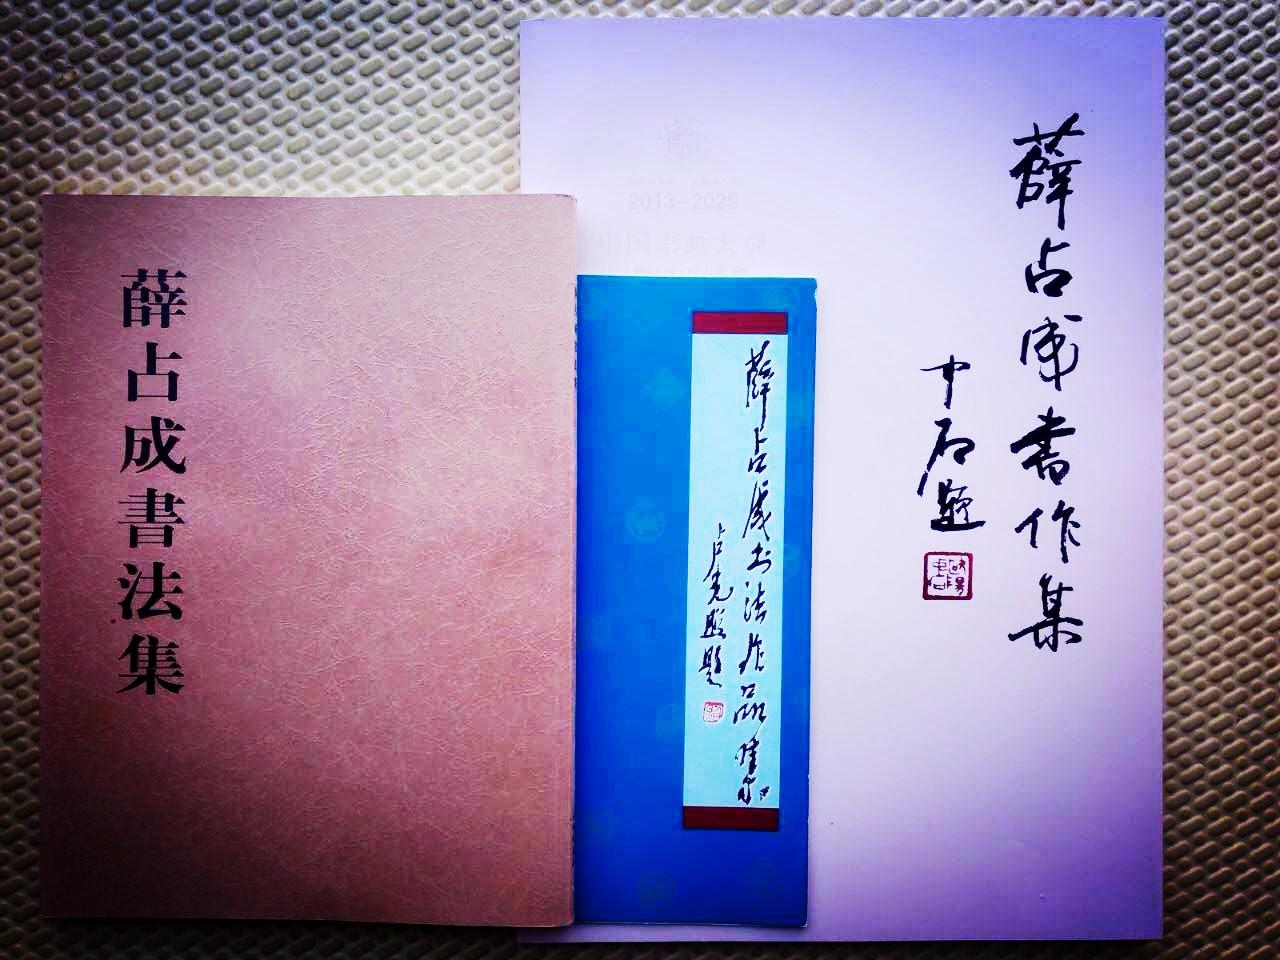 薛占成書法集
薛占成书法作品集
卢光照题
薛占成書作集
中石题
2013-2025
中国书画大观